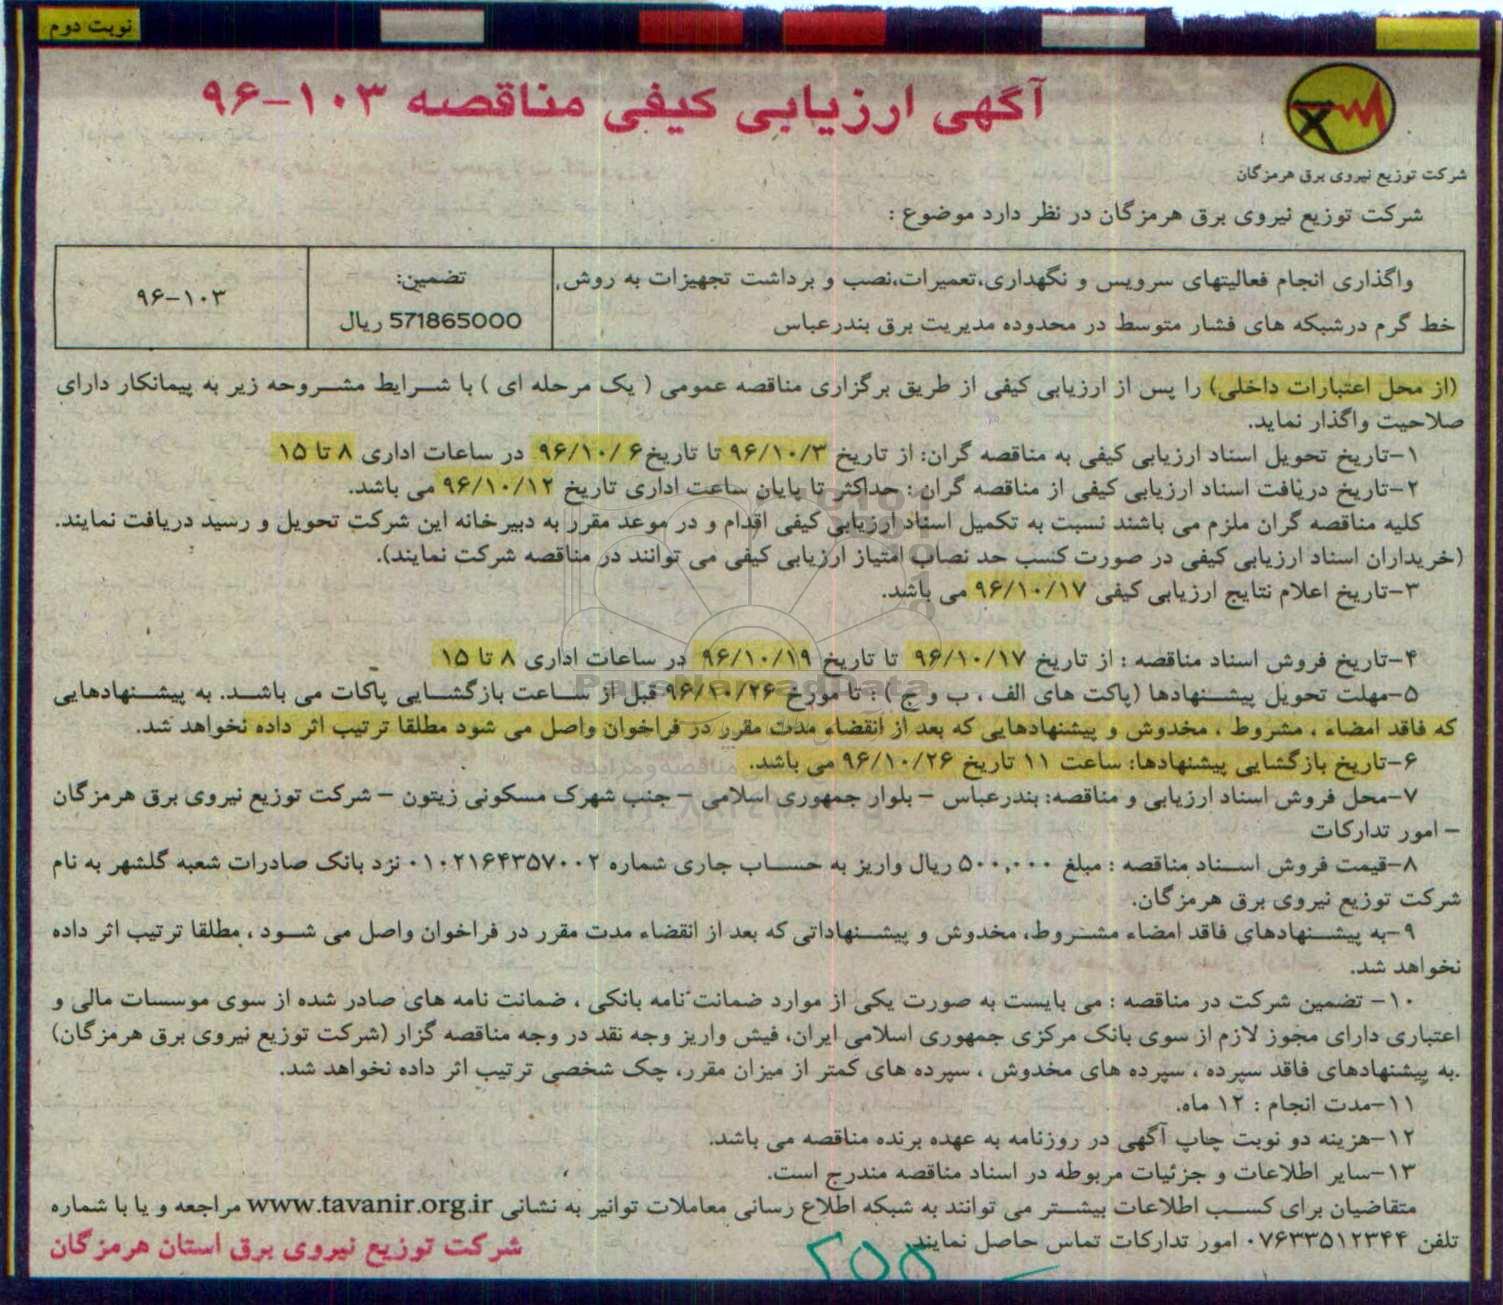 نوبت دوم
آگهی ارزیابی کیفی مناقصه ۱۰۳-۹۶
شرکت توزیع نیروی برق هرمزگان
شرکت توزیع نیروی برق هرمزگان در نظر دارد موضوع :
واگذاری انجام فعالیتهای سرویس و نگهداری،تعمیرات،نصب و برداشت تجهیزات به روش
خط گرم درشبکه های فشار متوسط در محدوده مدیریت برق بندرعباس
تضمین:
571865000 ریال
۹۶-۱۰۳
(از محل اعتبارات داخلی) را پس از ارزیابی کیفی از طریق برگزاری مناقصه عمومی ( یک مرحله ای ) با شرایط مشروحه زیر به پیمانکار دارای
صلاحیت واگذار نماید.
۱-تاریخ تحویل اسناد ارزیابی کیفی به مناقصه گران: از تاریخ ۹۶/۱۰/۳ تا تاریخ۹۶/۱۰/۶ در ساعات اداری ۸ تا ۱۵
۲-تاریخ دریافت اسناد ارزیابی کیفی از مناقصه گران : حداکثر تا پایان ساعت اداری تاریخ ۹۶/۱۰/۱۲ می باشد.
کلیه مناقصه گران ملزم می باشند نسبت به تکمیل اسناد ارزیابی کیفی اقدام و در موعد مقرر به دبیرخانه این شرکت تحویل و رسید دریافت نمایند.
(خریداران اسناد ارزیابی کیفی در صورت کسب حد نصاب امتیاز ارزیابی کیفی می توانند در مناقصه شرکت نمایند).
۳-تاریخ اعلام نتایج ارزیابی کیفی ۹۶/۱۰/۱۷ می باشد.
۴-تاریخ فروش اسناد مناقصه : از تاریخ ۹۶/۱۰/۱۷ تا تاریخ ۹۶/۱۰/۱۹ در ساعات اداری ۸ تا ۱۵
۵-مهلت تحویل پیشنهادها (پاکت های الف ، ب و ج ) : تا مورخ ۹۶/۱۰/۲۶ قبل از ساعت بازگشایی پاکات می باشد. به پیشنهادهایی
که فاقد امضاء ، مشروط ، مخدوش و پیشنهادهایی که بعد از انقضاء مدت مقرر در فراخوان واصل می شود مطلقا ترتیب اثر داده نخواهد شد.
۶-تاریخ بازگشایی پیشنهادها: ساعت ۱۱ تاریخ ۹۶/۱۰/۲۶ می باشد.
۷-محل فروش اسناد ارزیابی و مناقصه: بندرعباس – بلوار جمهوری اسلامی – جنب شهرک مسکونی زیتون – شرکت توزیع نیروی برق هرمزگان
– امور تدارکات
۸-قیمت فروش اسناد مناقصه : مبلغ ۵۰۰,۰۰۰ ریال واریز به حساب جاری شماره ۰۱۰۲۱۶۴۳۵۷۰۰۲ نزد بانک صادرات شعبه گلشهر به نام
شرکت توزیع نیروی برق هرمزگان.
۹-به پیشنهادهای فاقد امضاء مشروط، مخدوش و پیشنهاداتی که بعد از انقضاء مدت مقرر در فراخوان واصل می شود ، مطلقا ترتیب اثر داده
نخواهد شد.
۱۰- تضمین شرکت در مناقصه : می بایست به صورت یکی از موارد ضمانت نامه بانکی ، ضمانت نامه های صادر شده از سوی موسسات مالی و
اعتباری دارای مجوز لازم از سوی بانک مرکزی جمهوری اسلامی ایران، فیش واریز وجه نقد در وجه مناقصه گزار (شرکت توزیع نیروی برق هرمزگان)
.به پیشنهادهای فاقد سپرده ، سپرده های مخدوش ، سپرده های کمتر از میزان مقرر، چک شخصی ترتیب اثر داده نخواهد شد.
۱۱-مدت انجام : ۱۲ ماه.
۱۲-هزینه دو نوبت چاپ آگهی در روزنامه به عهده برنده مناقصه می باشد.
۱۳-سایر اطلاعات و جزئیات مربوطه در اسناد مناقصه مندرج است.
متقاضیان برای کسب اطلاعات بیشتر می توانند به شبکه اطلاع رسانی معاملات توانیر به نشانی www.tavanir.org.ir مراجعه و یا با شماره
تلفن ۰۷۶۳۳۵۱۲۳۴۴ امور تدارکات تماس حاصل نمایند.
شرکت توزیع نیروی برق استان هرمزگان
ParsNamadData